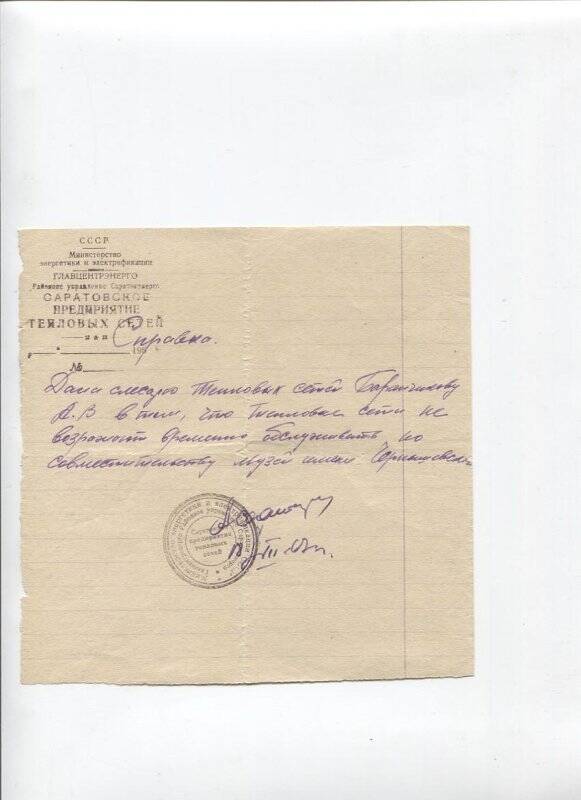 СССР
Министерство
энергетики и электрификации
ГЛАВЦЕНТРЭНЕРГО
Районное управление Саратовэнерго
САРАТОВСКОЕ
ПРЕДПРИЯТИЕ
ТЕПЛОВЫХ СЕТЕЙ
Справка.
196
№
Дана слесарю Тепловых сетей Баранчикову
А.В в том, что Тепловые сети не
возражают временно обслуживать по
совместительству музей имени Чернышевск
Саратовское
предприятие
тепловых
сетей
III